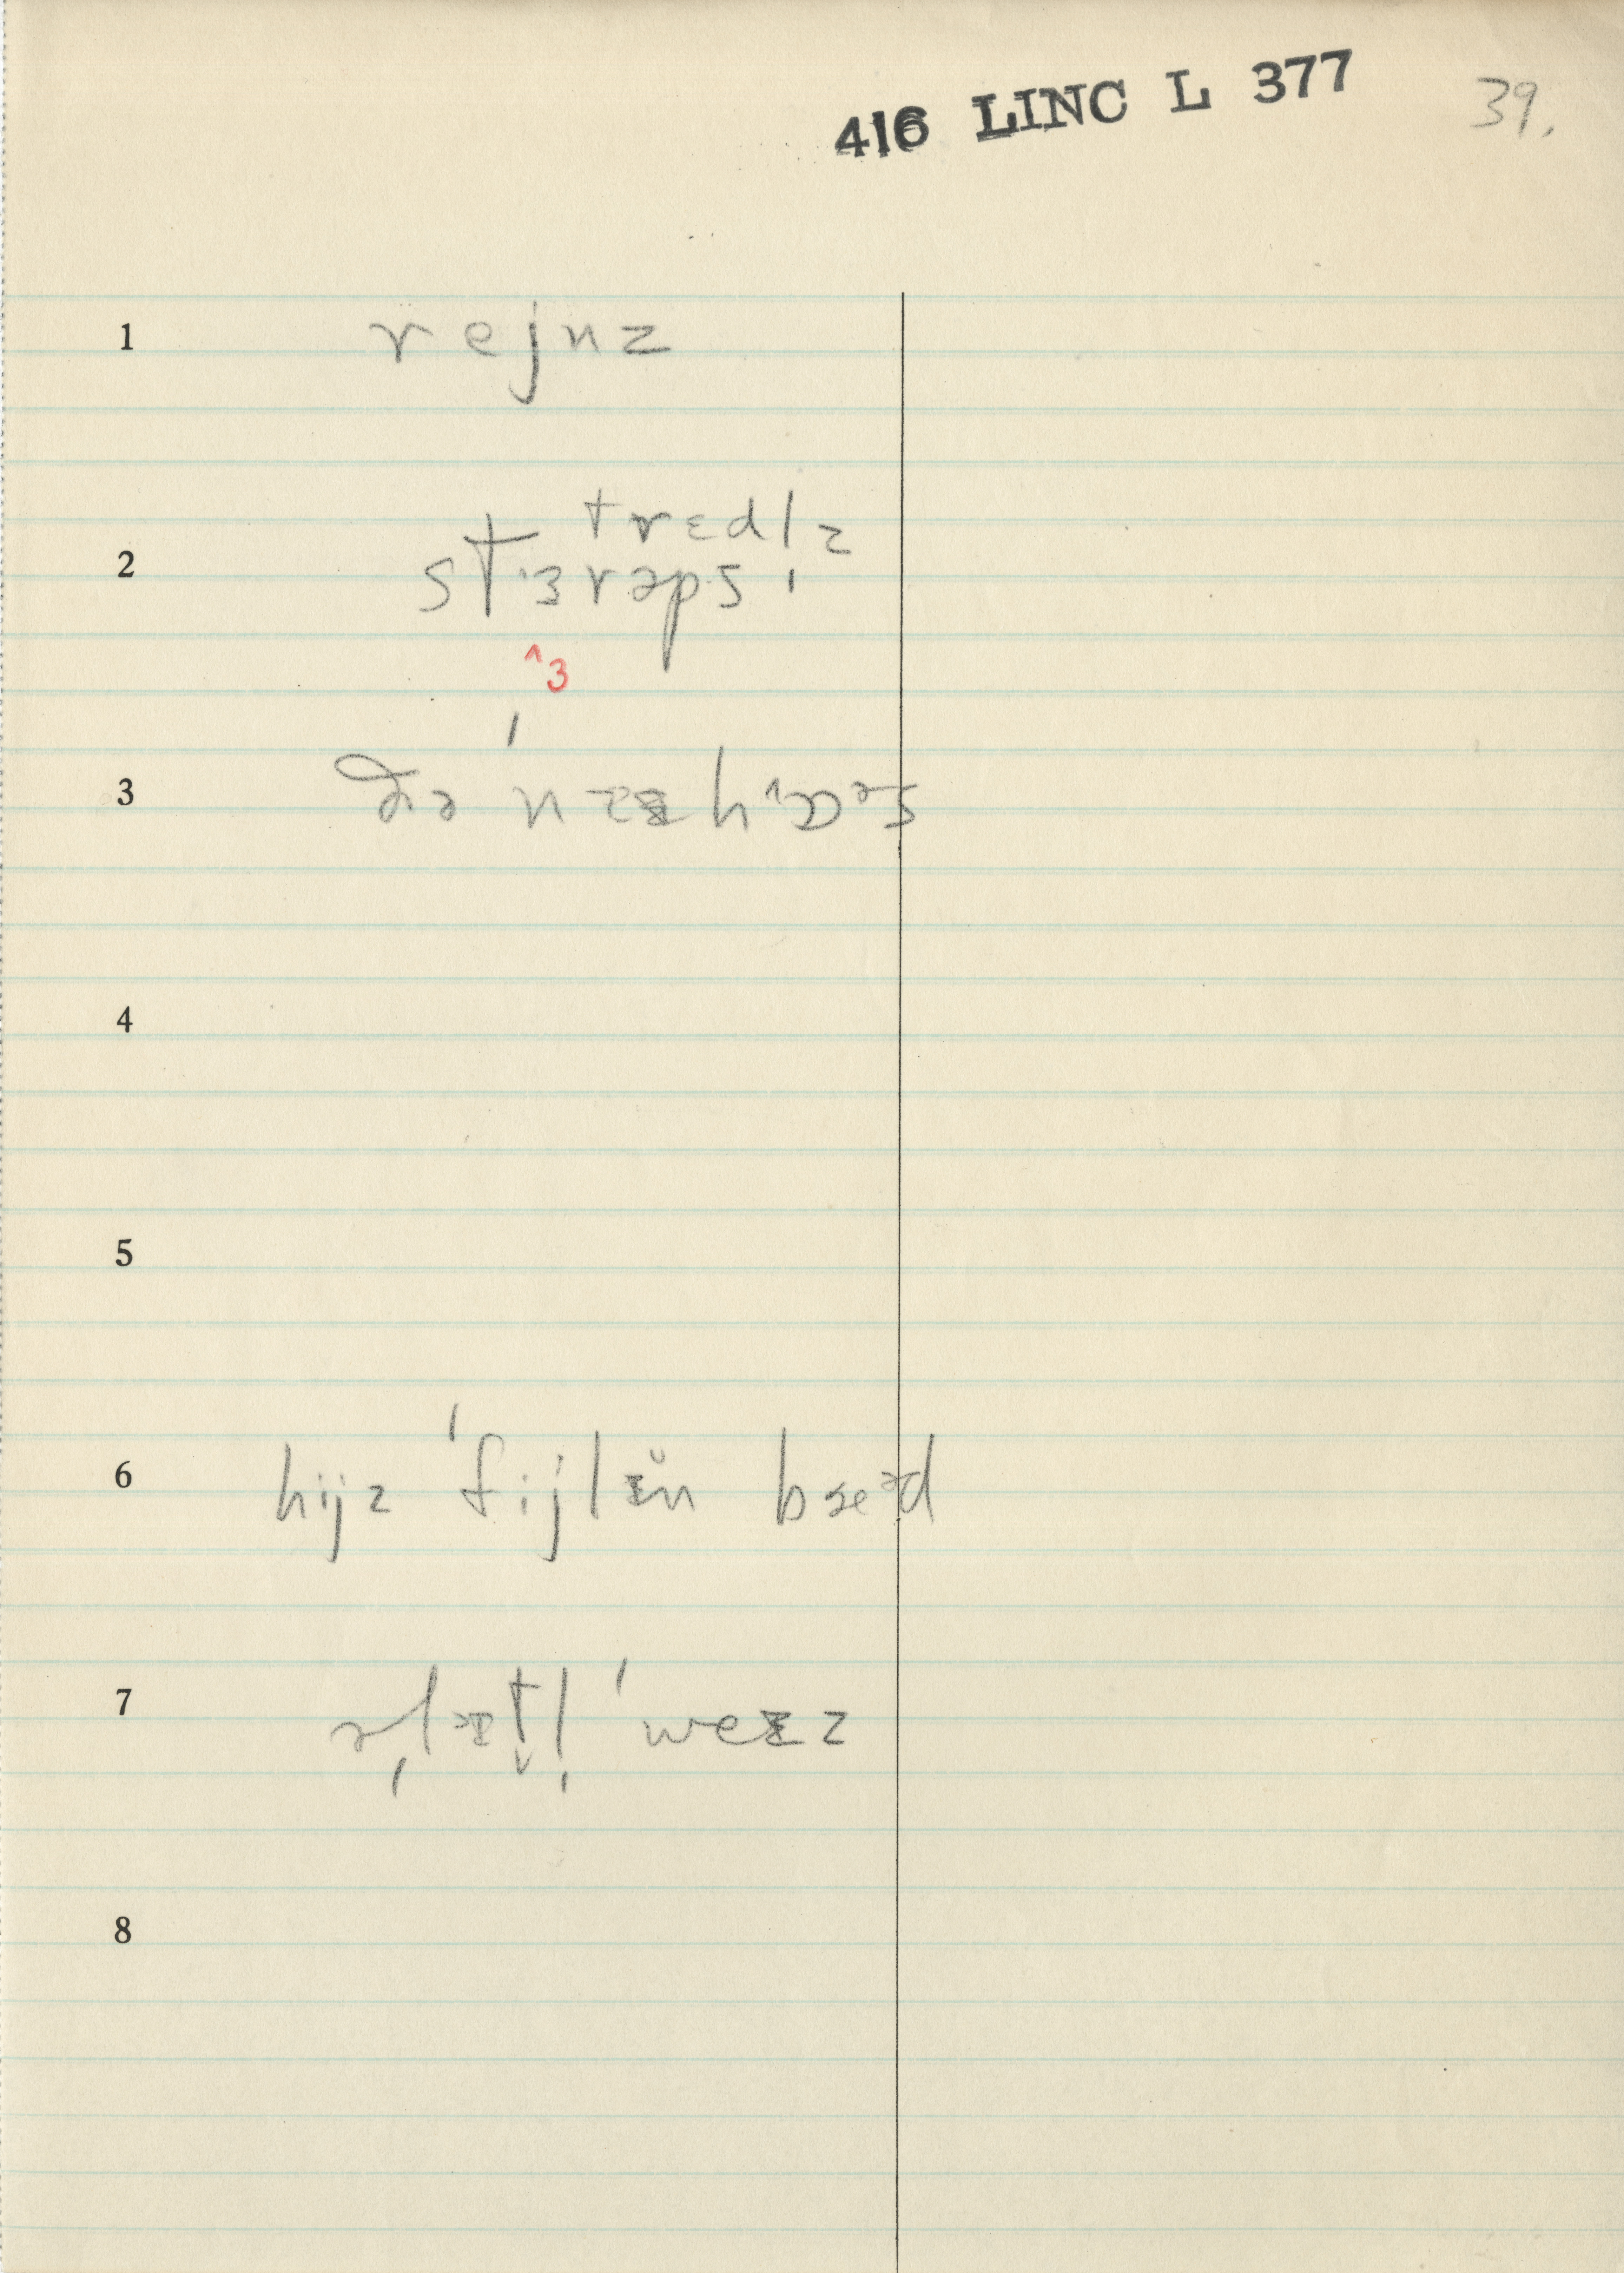 416 LINC L 377 39.
1 rejnz
tredl̩z
2 stɜrəps
^3
3
4
5
6 hijz ˈfijlɪ̆n bæᵊd
7
8